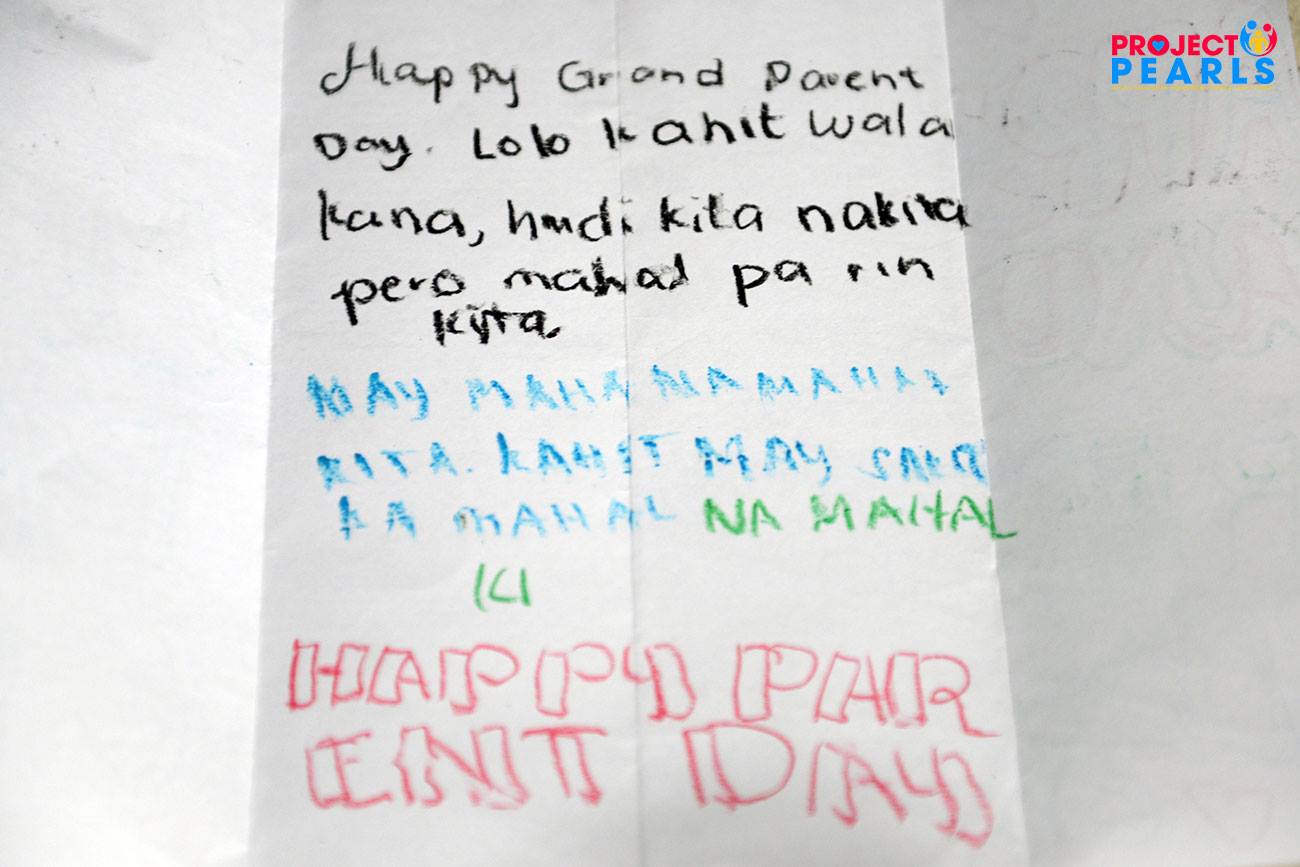 Happy Grand Parent
Day. Lolo kahit wala
kana, hindi kita nakita
pero mahal pa rin
kita
MAY MAHAMAMAHAL
KITA. KAHIT MAY SAKA
KA MAHAL NA MAHAL
HAPPY PAR
ENT DAY
PROJECT
PEARLS